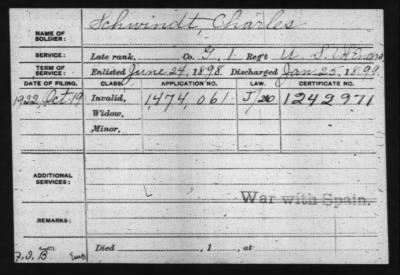 NAME OF SOLDIER: Schwindt, Charles
SERVICE: Late rank, Co. G, 1 Reg't U.S.V. Engrs
TERM OF SERVICE: Enlisted June 24, 1898. Discharged Jan 25, 1899.
DATE OF FILING. CLASS. APPLICATION NO. LAW. CERTIFICATE NO.
1922, Oct. 19 Invalid, 1,474,061 1242971
Widow,
Minor,
ADDITIONAL SERVICES:
War with Spain.
REMARKS:
Died , 1 , at